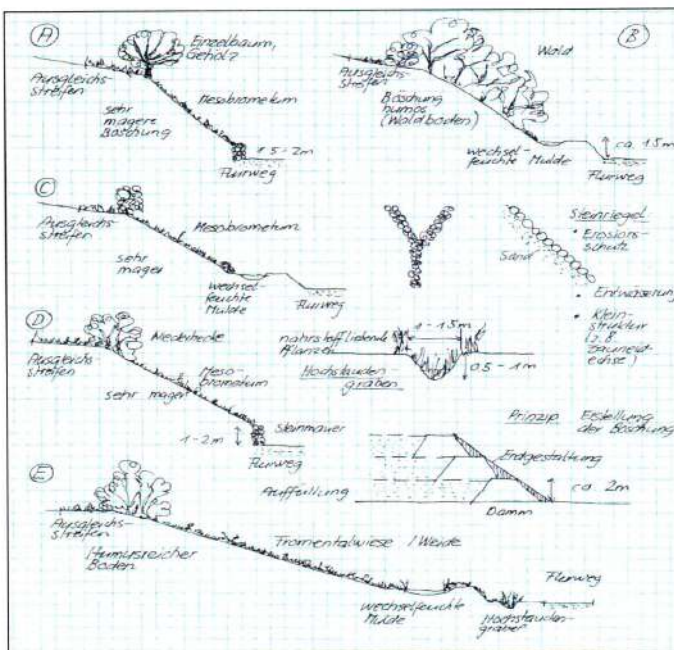 A
Einzelbaum,
Gehölz
Ausgleichs-
streifen
sehr
magere
Böschung
Mesobrometum
1.5-2m
Flurweg
B
Wald
Ausgleichs-
streifen
Böschung
humos
(Waldboden)
wechsel-
feuchte Mulde
ca. 1.5m
Flurweg
C
Ausgleichs-
streifen
Mesobrometum
sehr
mager
wechsel-
feuchte
Mulde
Flurweg
Sand
Steinriegel
• Erosions-
schutz
• Entwässerung
• Klein-
struktur
(z.B.
Zauneid-
echse)
D
Niederhecke
Ausgleichs
streifen
Meso-
brometum
sehr mager
1-2m
Steinmauer
Flurweg
nährstoffliebende
Pflanzen
1-1.5m
Hochstauden-
graben
0.5-1m
Prinzip Erstellung
der Böschung
Erdgestaltung
Auffüllung
ca. 2m
Damm
E
Ausgleichs-
streifen
Humusreicher
Boden
Fromentalwiese / Weide
wechselfeuchte
Mulde
Hochstauden-
graben
Flurweg